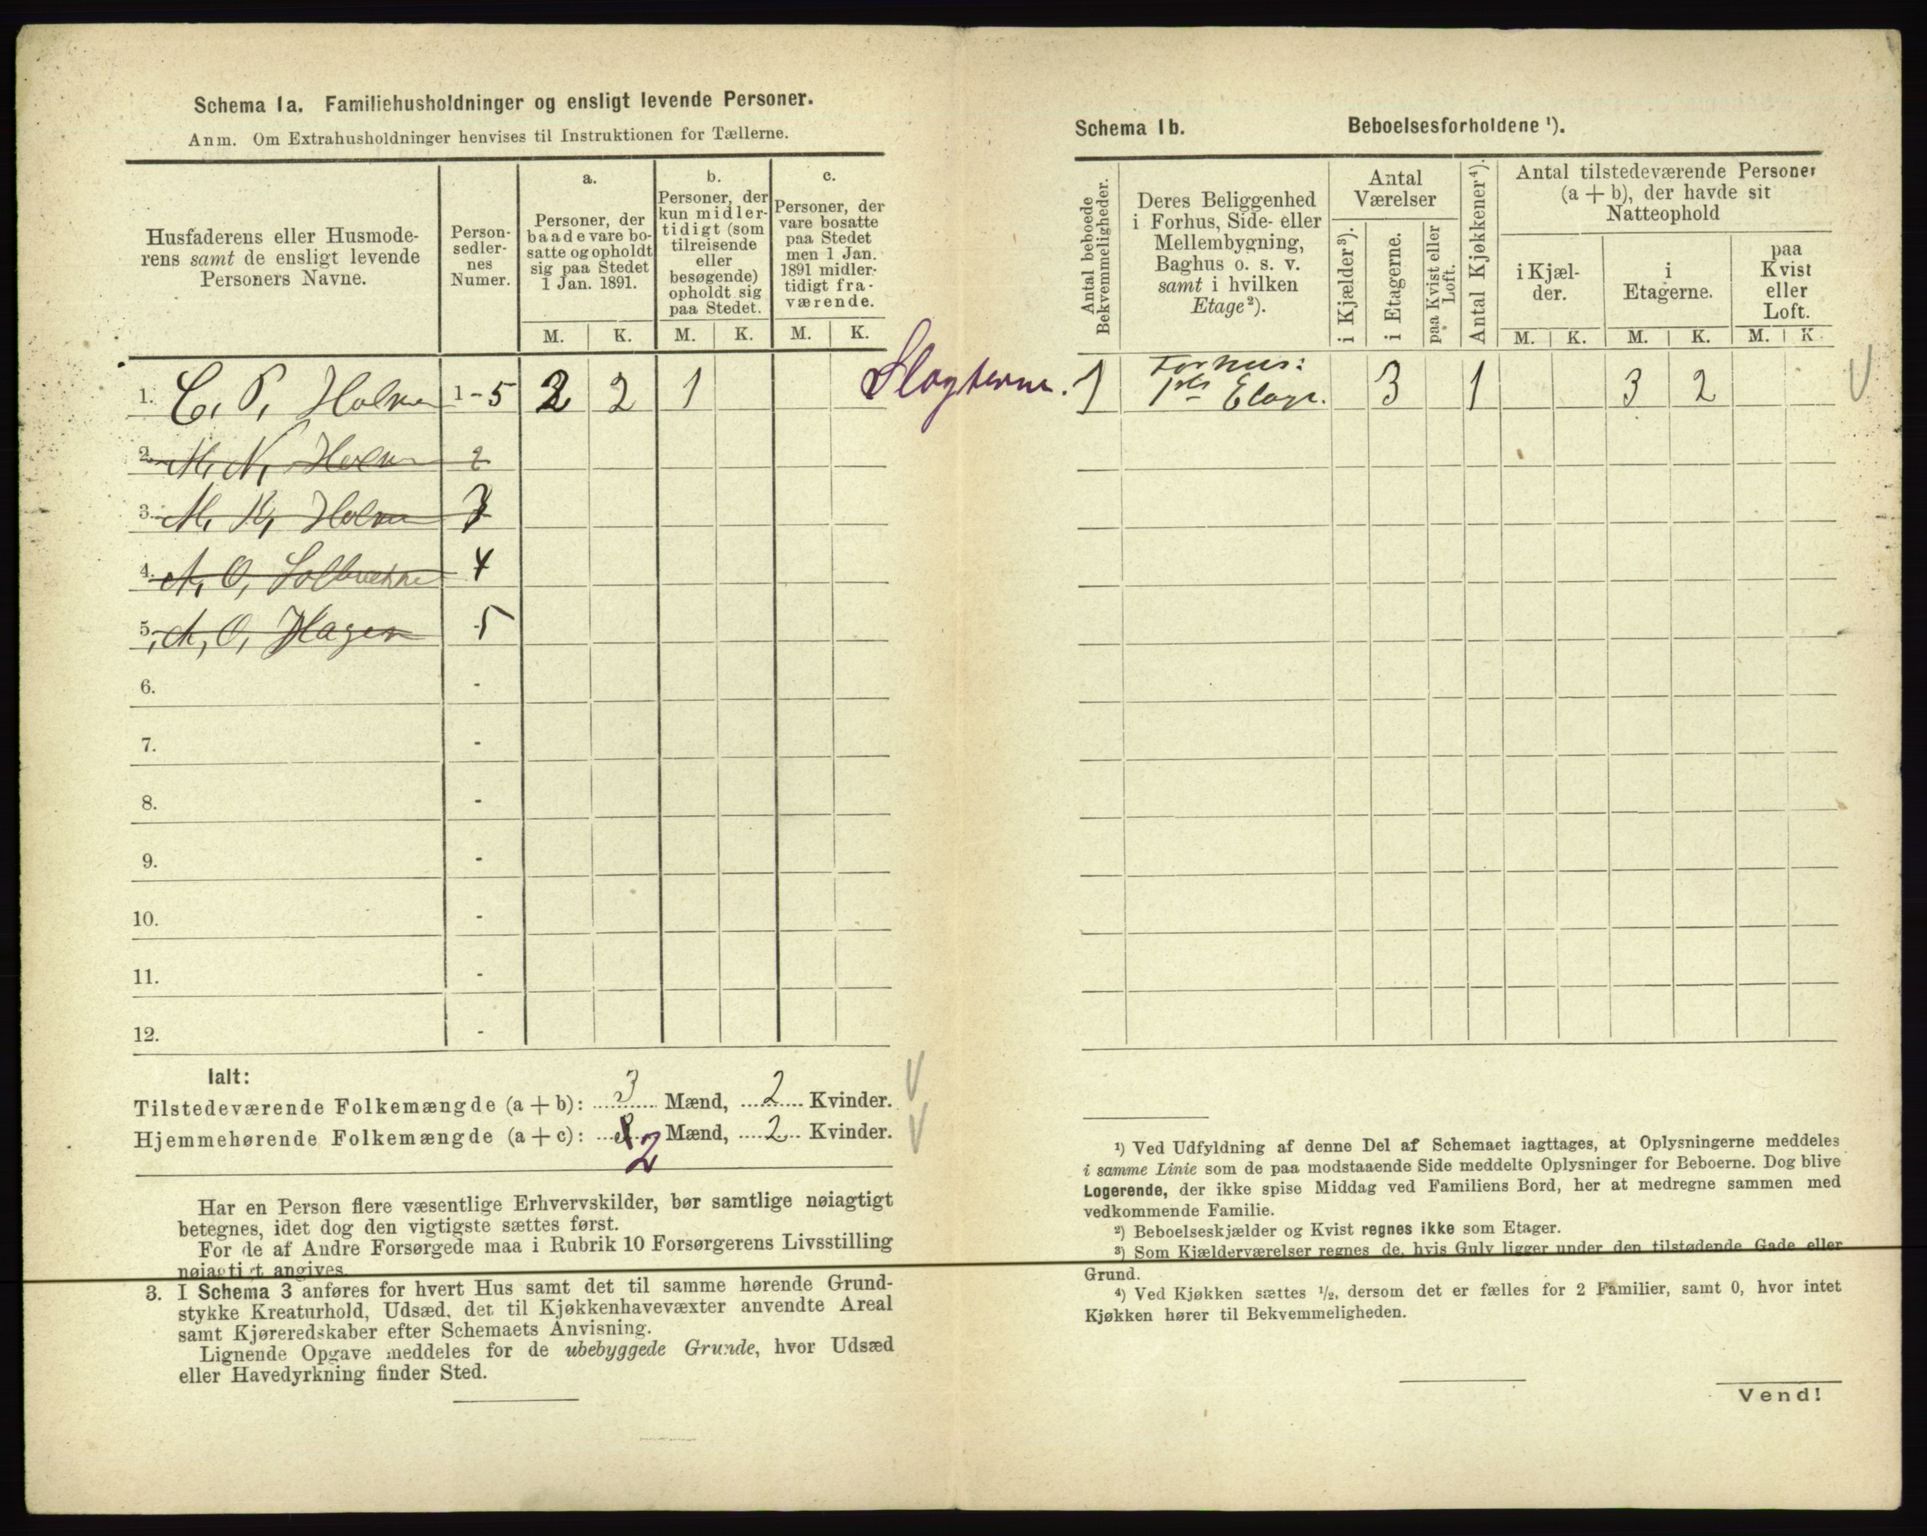 Schema 1a. Familiehusholdninger og ensligt levende Personer.
Anm. Om Extrahusholdninger henvises til Instruktionen for Tællerne.
Husfaderens eller Husmode-
rens samt de ensligt levende
Personers Navne.
Person-
sedler-
nes
Numer.
a.
Personer, der
baade vare bo-
satte og opholdt
sig paa Stedet
1 Jan. 1891.
b.
Personer, der
kun midler-
tidigt (som
tilreisende
eller
besøgende)
opholdt sig
paa Stedet.
c.
Personer, der
vare bosatte
paa Stedet
men 1 Jan.
1891 midler-
tidigt fra-
værende.
M. K. M. K. M. K.
1. C. P. Holm 1-5 2 2 1
2. M. N. Holm 2
3. M. K. Holm 3
4. A. O. 4
5. A. O. Hagen 5
6. -
7. -
8. -
9. -
10. -
11. -
12. -
Ialt:
Tilstedeværende Folkemængde (a + b): 3 Mænd, 2 Kvinder.
Hjemmehørende Folkemængde (a + c): 2 Mænd, 2 Kvinder.
Har en Person flere væsentlige Erhvervskilder, bør samtlige nøiagtigt
betegnes, idet dog den vigtigste sættes først.
For de af Andre Forsørgede maa i Rubrik 10 Forsørgerens Livsstilling
nøiagtigt angives.
3. I Schema 3 anføres for hvert Hus samt det til samme hørende Grund-
stykke Kreaturhold, Udsæd, det til Kjøkkenhavevæxter anvendte Areal
samt Kjøreredskaber efter Schemaets Anvisning.
Lignende Opgave meddeles for de ubebyggede Grunde, hvor Udsæd
eller Havedyrkning finder Sted.
Schema 1b. Beboelsesforholdene ¹).
Antal beboede
Bekvemmeligheder.
Deres Beliggenhed
i Forhus, Side- eller
Mellembygning,
Baghus o. s. v.
samt i hvilken
Etage²).
Antal
Værelser
i Kjælder³).
i Etagerne.
paa Kvist eller
Loft.
Antal Kjøkkener⁴).
Antal tilstedeværende Personer
(a + b), der havde sit
Natteophold
i Kjæl-
der.
i
Etagerne.
paa
Kvist
eller
Loft.
M. K. M. K. M. K.
1 Forhus: 3 1 3 2
1ste Etage.
¹) Ved Udfyldning af denne Del af Schemaet iagttages, at Oplysningerne meddeles
i samme Linie som de paa modstaaende Side meddelte Oplysninger for Beboerne. Dog blive
Logerende, der ikke spise Middag ved Familiens Bord, her at medregne sammen med
vedkommende Familie.
²) Beboelseskjælder og Kvist regnes ikke som Etager.
³) Som Kjælderværelser regnes de, hvis Gulv ligger under den tilstødende Gade eller
Grund.
⁴) Ved Kjøkken sættes ½, dersom det er fælles for 2 Familier, samt 0, hvor intet
Kjøkken hører til Bekvemmeligheden.
Vend!